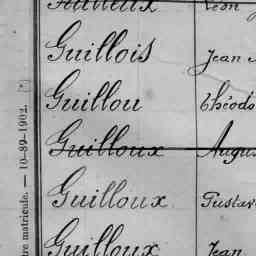 Guillois Jean
Guillou Théodo
Guilloux Augus
Guilloux Gustav
Guilloux Jean
tre matricule. — 10-89-1902. [*]